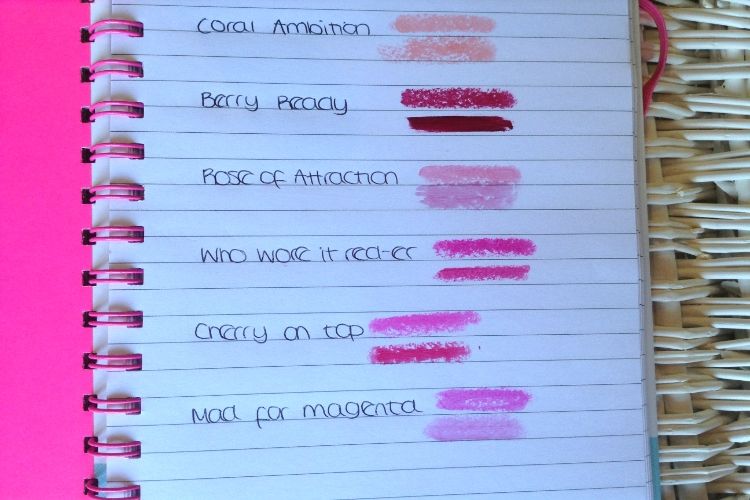 Coral Ambition
Berry Ready
Rose of Attraction
Who wore it red-er
Cherry on top
Mad for magenta